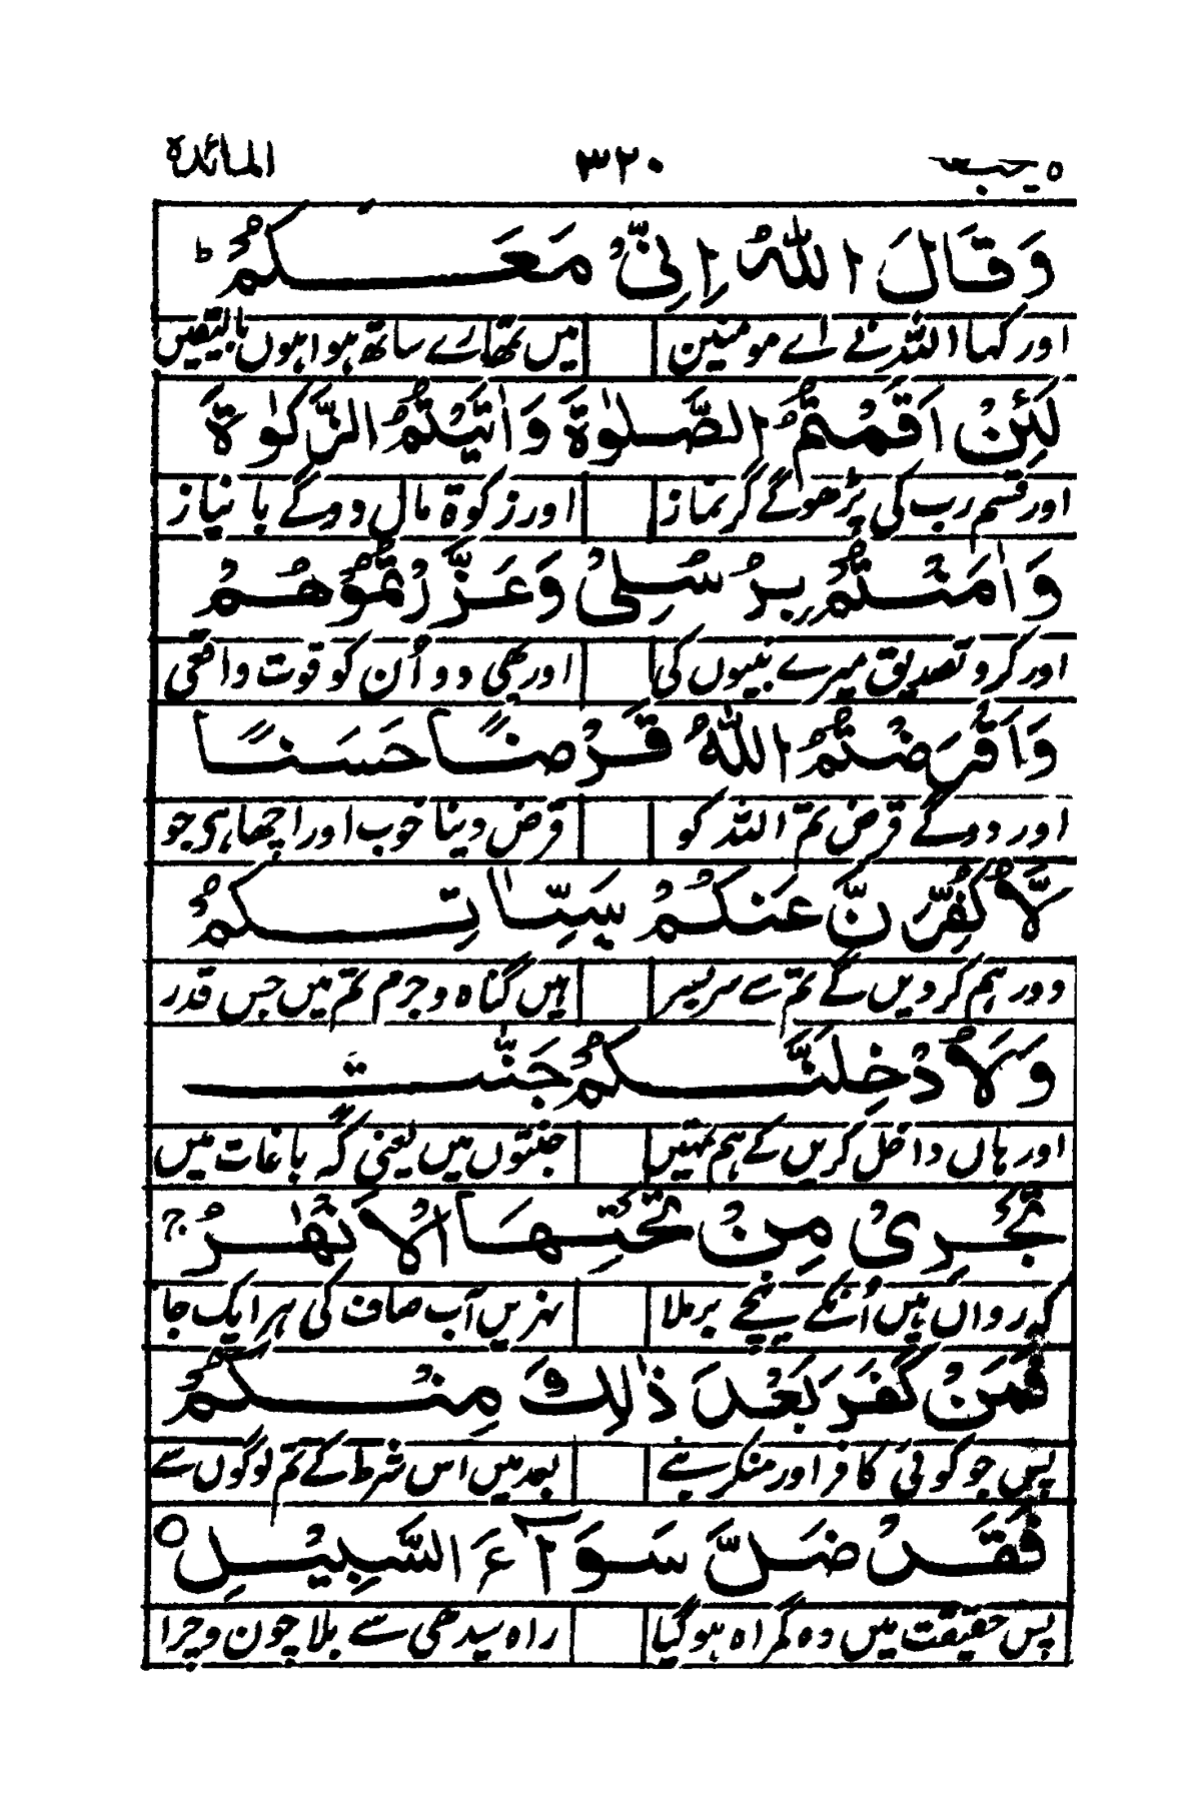 المائدة ۳۲۰ یحب ۵
وَقَالَ اللّٰهُ اِنِّیْ مَعَكُمْ ؕ
اور کہا اللہ نے اے مومنین میں تمھارے ساتھ ہوا ہوں بالیقیں
لَئِنْ اَقَمْتُمُ الصَّلٰوةَ وَاٰتَیْتُمُ الزَّكٰوةَ
اور قسم رب کی پڑھوگے گر نماز اور زکوۃ مال دوگے با نیاز
وَاٰمَنْتُمْ بِرُسُلِیْ وَعَزَّرْتُمُوْهُمْ
اور کرو تصدیق میرے نبیوں کی اور بھی دو اُن کو قوت واقعی
وَاَقْرَضْتُمُ اللّٰهَ قَرْضًا حَسَنًا
اور دوگے قرض تم اللہ کو قرض دینا خوب اور اچھا ہی جو
لَّاُكَفِّرَنَّ عَنْكُمْ سَیِّاٰتِكُمْ
دور ہم کر دیں گے تم سے سر بسر ہیں گناہ و جرم تم میں جس قدر
وَلَاُدْخِلَنَّكُمْ جَنّٰتٍ
اور ہاں داخل کریں گے ہم تمہیں جنتوں میں یعنی کہ باغات میں
تَجْرِیْ مِنْ تَحْتِهَا الْاَنْهٰرُ ۚ
کہ رواں ہیں اُنکے نیچے برملا نہریں آب صاف کی ہر ایک جا
فَمَنْ كَفَرَ بَعْدَ ذٰلِكَ مِنْكُمْ
پس جو کوئی کافر اور منکر بنے بعد میں اس شرط کے تم لوگوں سے
فَقَدْ ضَلَّ سَوَآءَ السَّبِیْلِ ○
پس حقیقت میں وہ گمراہ ہو گیا راہ سیدھی سے بلا چون و چرا